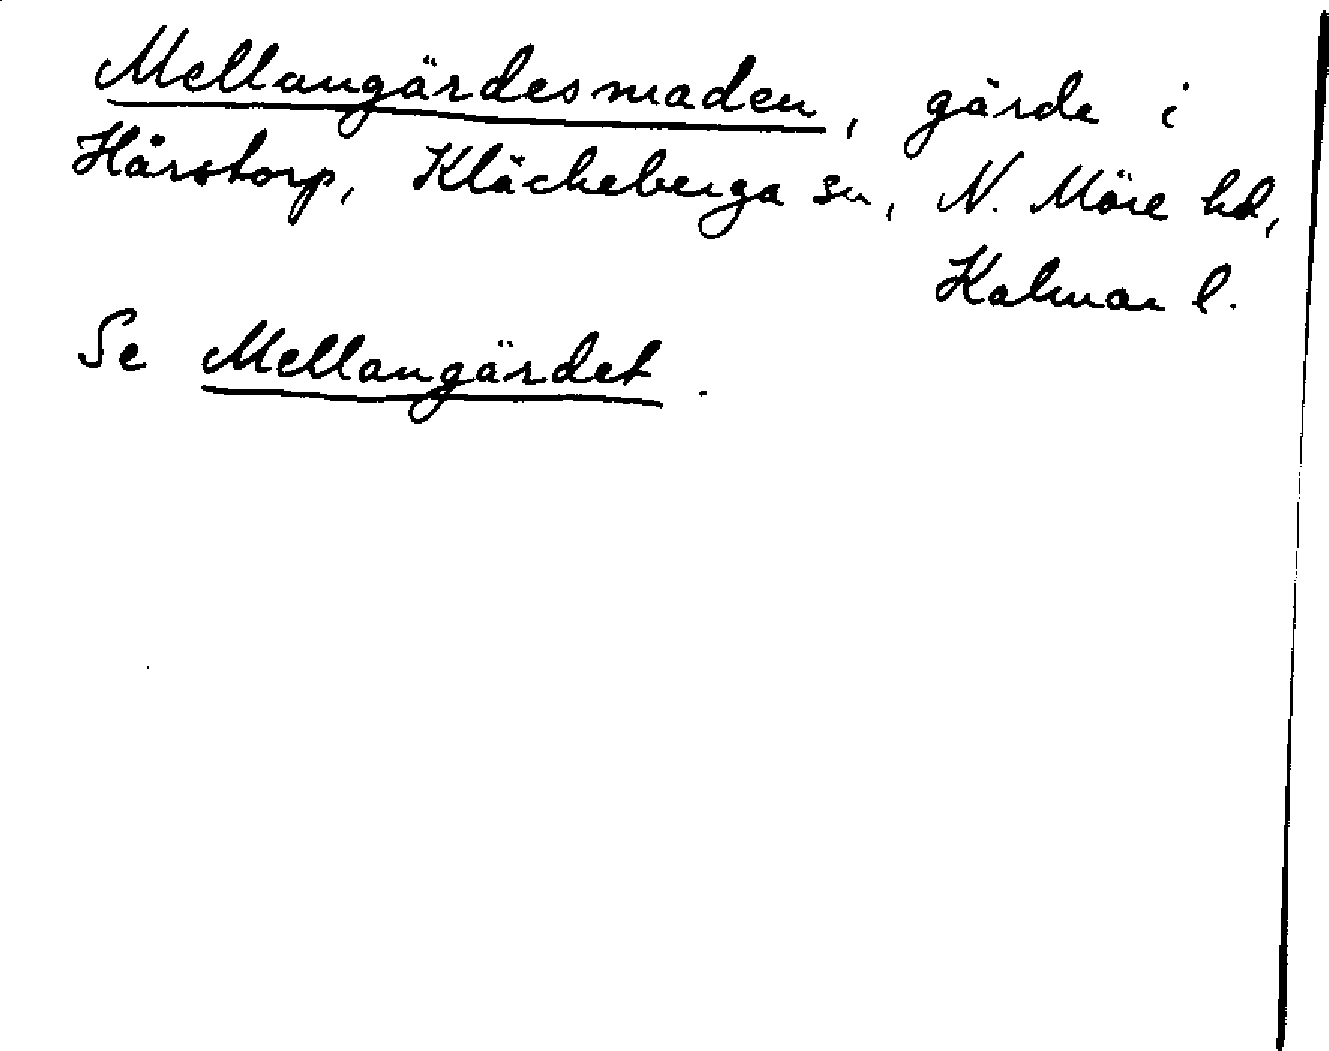 Mellangärdesmaden, gärde i
Härstorp, Kläckeberga sn, N. Möre hd,
Kalmar l.
Se Mellangärdet.